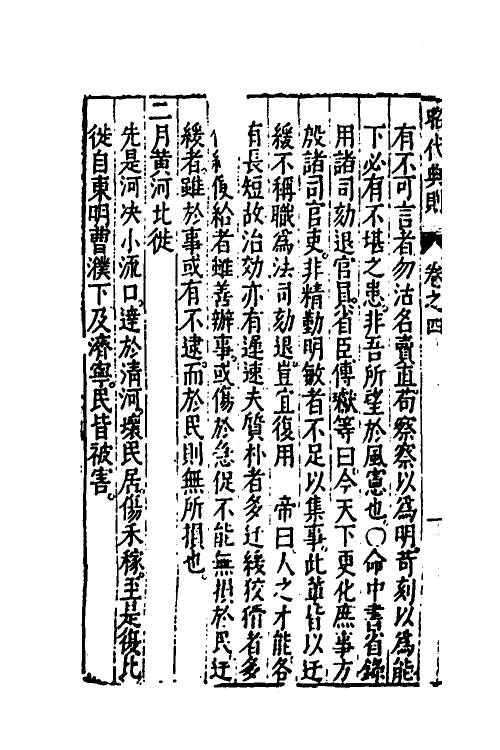 昭代典則 卷之四 一
有不可言者勿沽名賣直苟察察以為明苛刻以為能
下必有不堪之患非吾所望於風憲也○命中書省錄
用諸司劾退官員省臣傅瓛等曰今天下更化庶事方
殷諸司官吏非精勤明敏者不足以集事此輩皆以迂
緩不稱職為法司劾退豈宜復用 帝曰人之才能各
有長短故治効亦有遲速夫質朴者多迂緩狡猾者多
便給者雖善辦事或傷於急促不能無損於民迂
緩者雖於事或有不逮而於民則無所損也
二月黃河北徙
先是河决小流口達於清河壞民居傷禾稼至是復北
徙自東明曹濮下及濟寧民皆被害